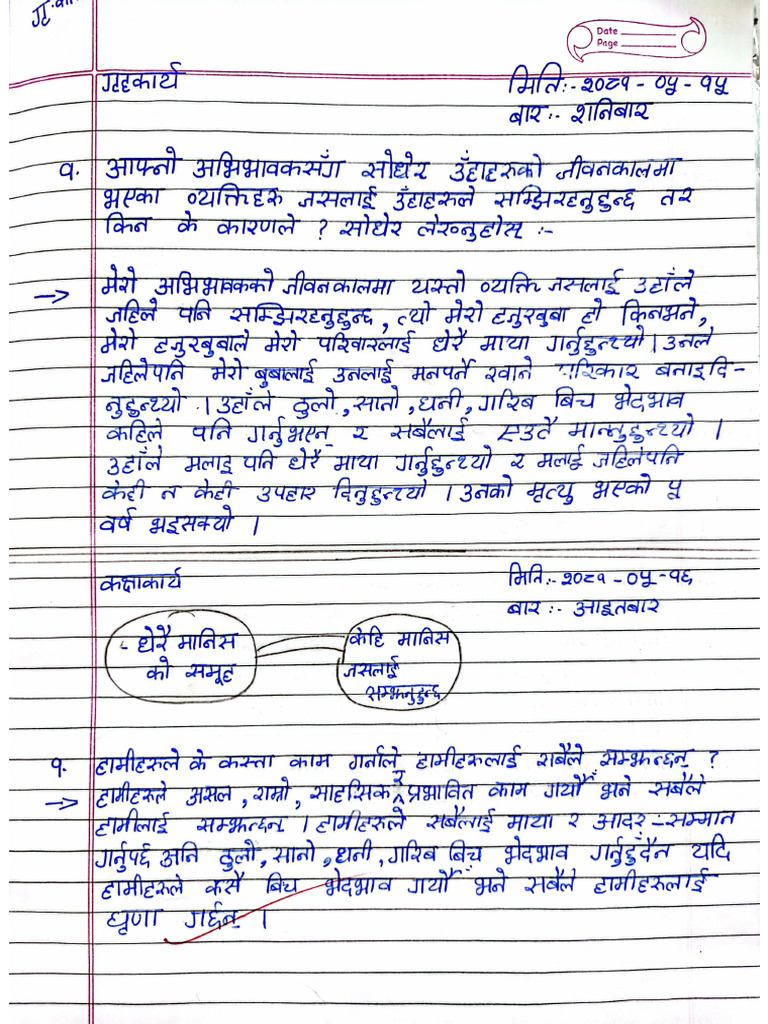 गृ.का
Date
Page
गृहकार्य
मिति:-२०८१-०५-१५
बार:- शनिबार
१. आफ्नो अभिभावकसँग सोधेर उँहाहरुको जीवनकालमा
भएका व्यक्तिहरु जसलाई उँहाहरुले सम्झिरहनुहुन्छ तर
किन के कारणले ? सोधेर लेख्नुहोस् :-
→ मेरो अभिभावकको जीवनकालमा यस्तो व्यक्ति जसलाई उहाँले
जहिले पनि सम्झिरहनुहुन्छ, त्यो मेरो हजुरबुबा हो किनभने,
मेरो हजुरबुबाले मेरो परिवारलाई धेरै माया गर्नुहुन्थ्यो । उनले
जहिलेपनि मेरो बुबालाई उनलाई मनपर्ने खाने बनाइदि-
नुहुन्थ्यो । उहाँले ठुलो, सानो, धनी, गरिब बिच भेदभाव
कहिले पनि गर्नुभएन् र सबैलाई एउटै मान्नुहुन्थ्यो ।
उहाँले मलाइ पनि धेरै माया गर्नुहुन्थ्यो र मलाई जहिलेपनि
केही न केही उपहार दिनुहुन्थ्यो । उनको मृत्यु भएको ५
वर्ष भइसक्यो ।
कक्षाकार्य
मिति:-२०८१-०५-१६
बार :- आइतबार
- धेरै मानिस
को समूह
केहि मानिस
जसलाई
सम्झनुहुन्छ
१. हामीहरुले के कस्ता काम गर्नाले हामीहरुलाई सबैले सम्झन्छन् ?
→ हामीहरुले असल, राम्रो, साहसिक र प्रभावित काम गर्यौँ भने सबैले
हामीलाई सम्झन्छन् । हामीहरुले सबैलाई माया र आदर-सम्मान
गर्नुपर्छ अनि ठुलो, सानो, धनी, गरिब बिच भेदभाव गर्नुहुँदैन यदि
हामीहरुले कसै बिच भेदभाव गर्यौँ भने सबैले हामीहरुलाई
घृणा गर्छन् ।